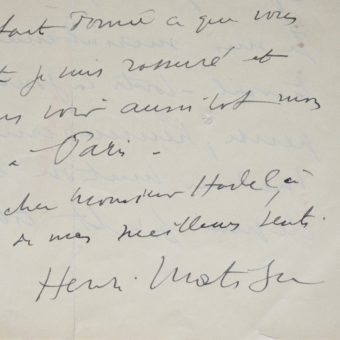 tout donné ce que vous
je suis rassuré et
voir aussitôt mon
à Paris -
cher Monsieur Hodel, à
de mes meilleurs sent.
Henri Matisse